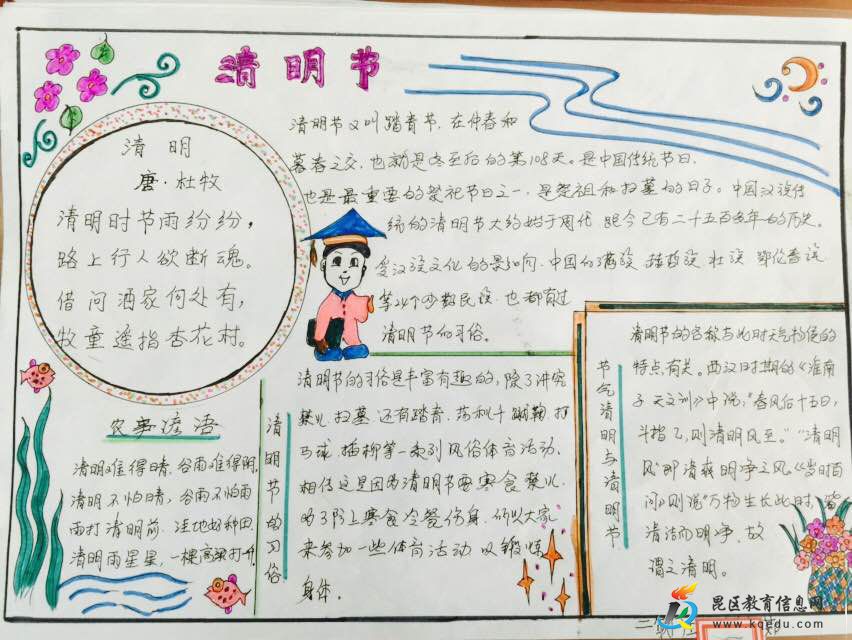 清明节
清明
唐·杜牧
清明时节雨纷纷，
路上行人欲断魂。
借问酒家何处有，
牧童遥指杏花村。
清明节又叫踏青节，在仲春和
暮春之交，也就是冬至后的第108天。是中国传统节日，
也是最重要的祭祀节日之一，是祭祖和扫墓的日子。中国汉族传
统的清明节大约始于周代，距今已有二千五百多年的历史。
受汉族文化的影响，中国的满族、赫哲族、壮族、鄂伦春族
等24个少数民族，也都有过
清明节的习俗。
农事谚语
清明难得晴，谷雨难得阴。
清明不怕晴，谷雨不怕雨
雨打清明前，洼地好种田
清明雨星星，一棵高粱打一升
清明节的习俗
清明节的习俗是丰富有趣的，除了讲究
禁火、扫墓，还有踏青、荡秋千、蹴鞠、打
马球、插柳等一系列风俗体育活动。
相传这是因为清明节要寒食禁火，
为了防止寒食冷餐伤身，所以大家
来参加一些体育活动，以锻炼
身体。
节气清明与清明节
清明节的名称与此时天气物侯的
特点有关。西汉时期的《淮南
子·天文训》中说："春风后十五日，
斗指乙，则清明风至。""清明
风"即清爽明净之风。《岁时百
问》则说"万物生长此时，皆
清洁而明净，故
谓之清明。
昆区教育信息网
www.kqedu.com